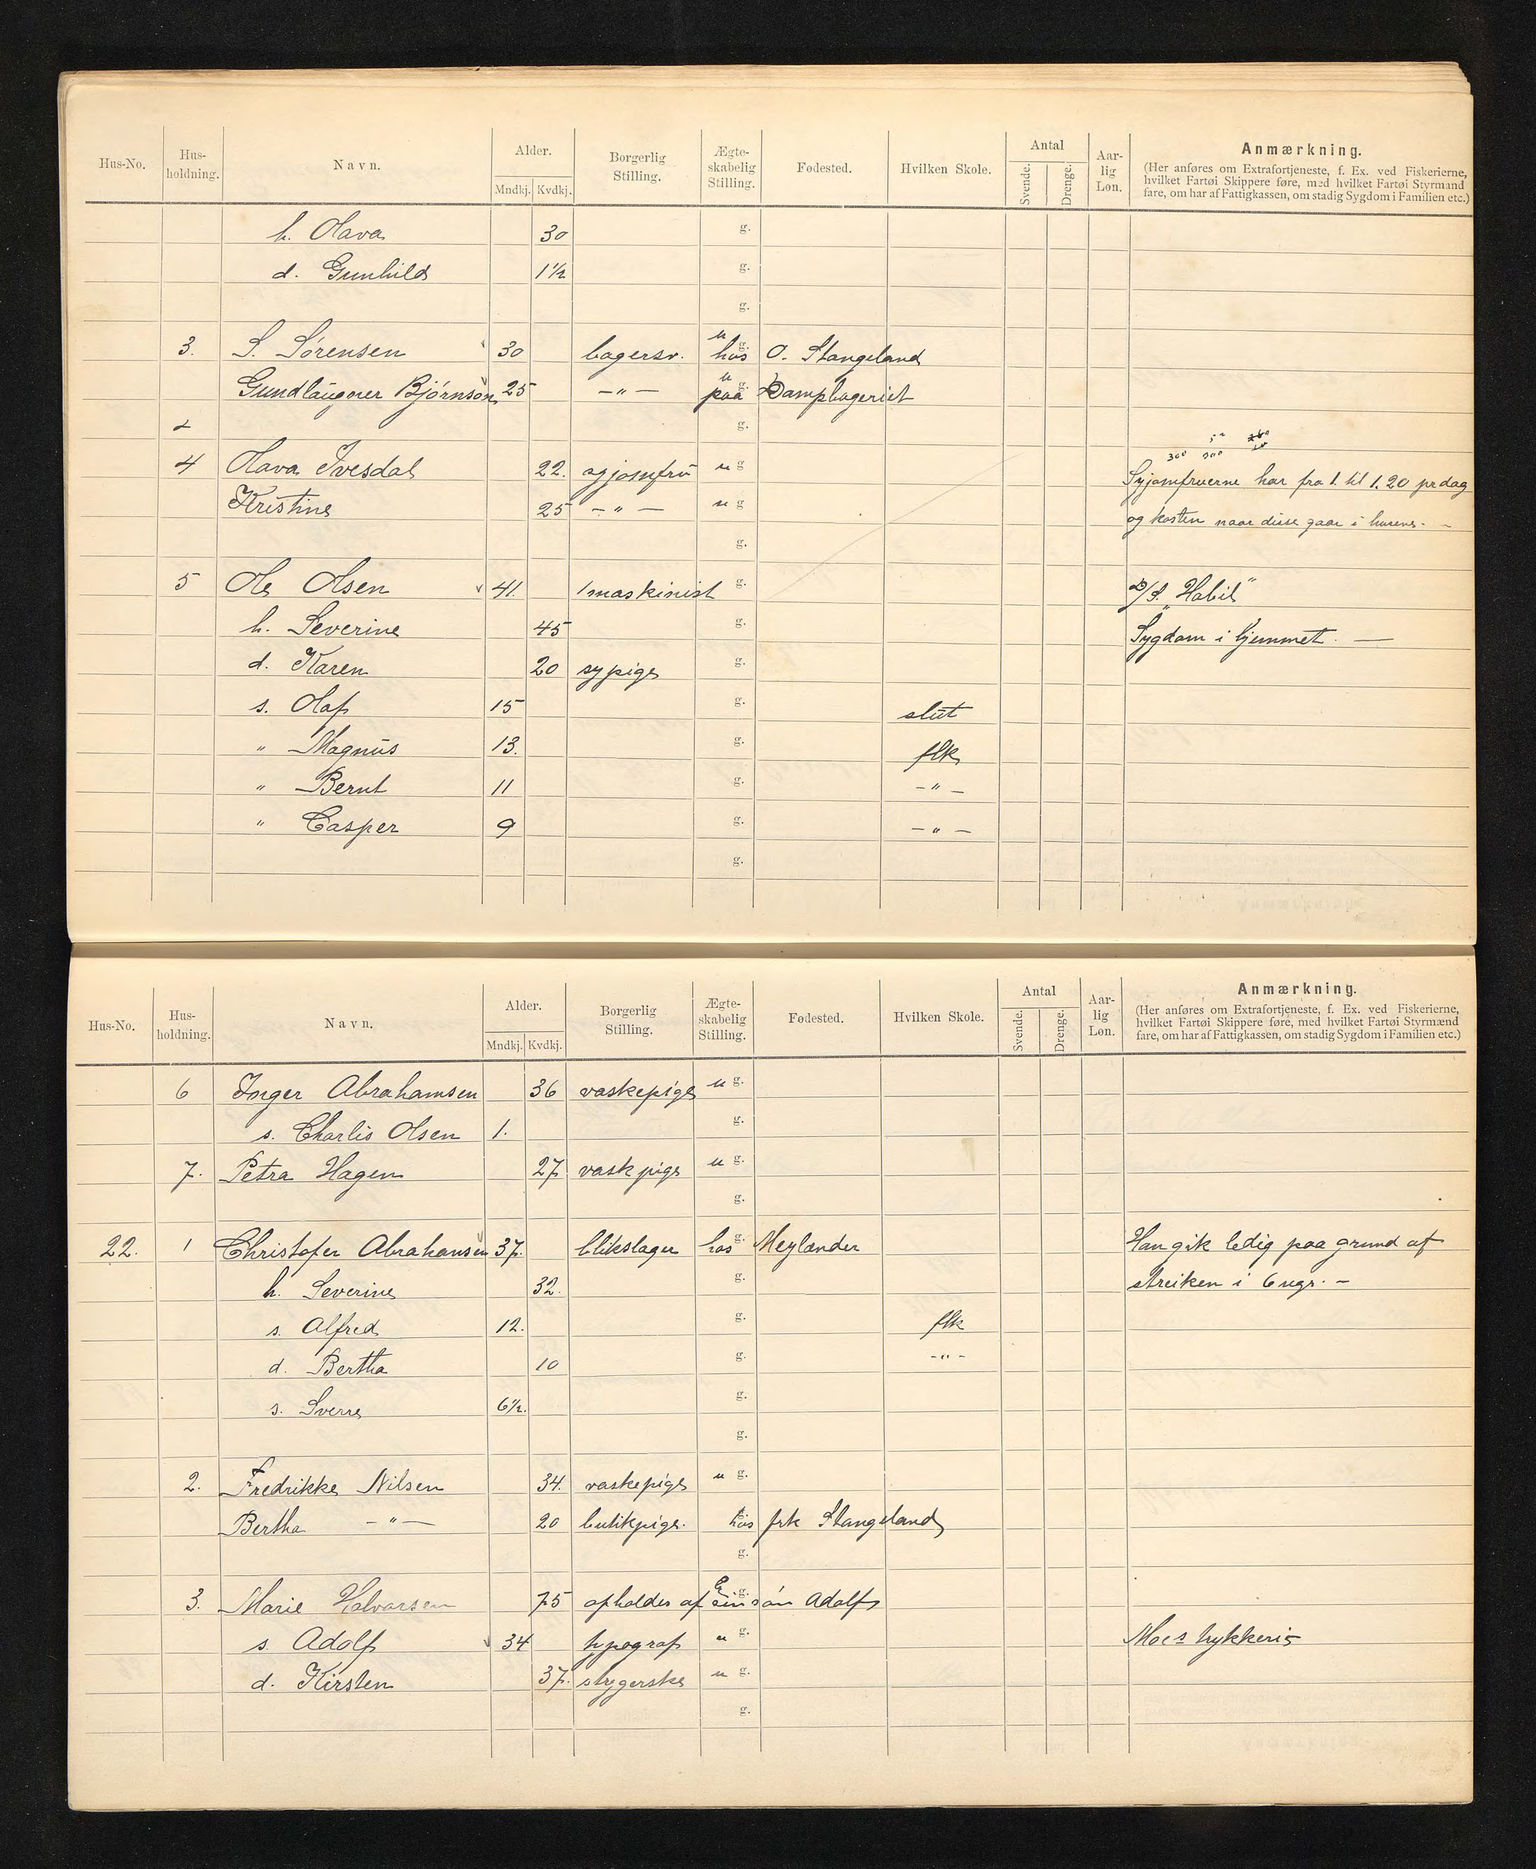 Hus-No. Hus-holdning. Navn. Alder. Mndkj. Kvdkj. Borgerlig Stilling. Ægte-skabelig Stilling. Fødested. Hvilken Skole. Antal Svende. Drenge. Aar-lig Løn. Anmærkning.
(Her anføres om Extrafortjeneste, f. Ex. ved Fiskerierne, hvilket Fartøi Skippere føre, med hvilket Fartøi Styrmænd fare, om har af Fattigkassen, om stadig Sygdom i Familien etc.)
h. Olava 30 g.
d. Gunhild 1½ g.
g.
3. S. Sørensen 30 bagersv. u g. hos O. Stangeland
Gundlaugner Bjørnson 25 —"— u g. paa Dampbageriet
2 g.
300 300
4 Olava Ivesdal 22. syjomfru u g Syjomfruerne har fra 1. til 1.20 pr dag
Kristine 25 —"— u g og kosten naar disse gaar i husene. –
g.
5 Ole Olsen 41. 1 maskinist g. D/S. "Habil"
h. Severine 45 g. Sygdom i hjemmet. —
d. Karen 20 sypige g.
s. Olaf 15 g. slut
" Magnus 13. g. flk
" Bernt 11 g. —"—
" Casper 9 g. —"—
g.
Hus-No. Hus-holdning. Navn. Alder. Mndkj. Kvdkj. Borgerlig Stilling. Ægte-skabelig Stilling. Fødested. Hvilken Skole. Antal Svende. Drenge. Aar-lig Løn. Anmærkning.
(Her anføres om Extrafortjeneste, f. Ex. ved Fiskerierne, hvilket Fartøi Skippere føre, med hvilket Fartøi Styrmænd fare, om har af Fattigkassen, om stadig Sygdom i Familien etc.)
6 Inger Abrahamsen 36 vaskepige u g.
s. Charlis Olsen 1. g.
7. Petra Hagen 27 vaskpige u g.
g.
22. 1 Christofer Abrahamsen 37. blikslager hos g. Meylænder Han gik ledig paa grund af
h. Severine 32. g. streiken i 6 ugr. –
s. Alfred 12. g. flk
d. Bertha 10 g. -"-
s. Sverre 6½. g.
g.
2. Fredrikke Nilsen 34. vaskepige u g.
Bertha —"— 20 butikpige. hos frk Stangeland
g.
3. Marie Halvorsen 75 opholdes af sin søn Adolf g.
s. Adolf 34 typograf u g. Moes trykkeri
d. Kirsten 37. strygerske u g.
g.